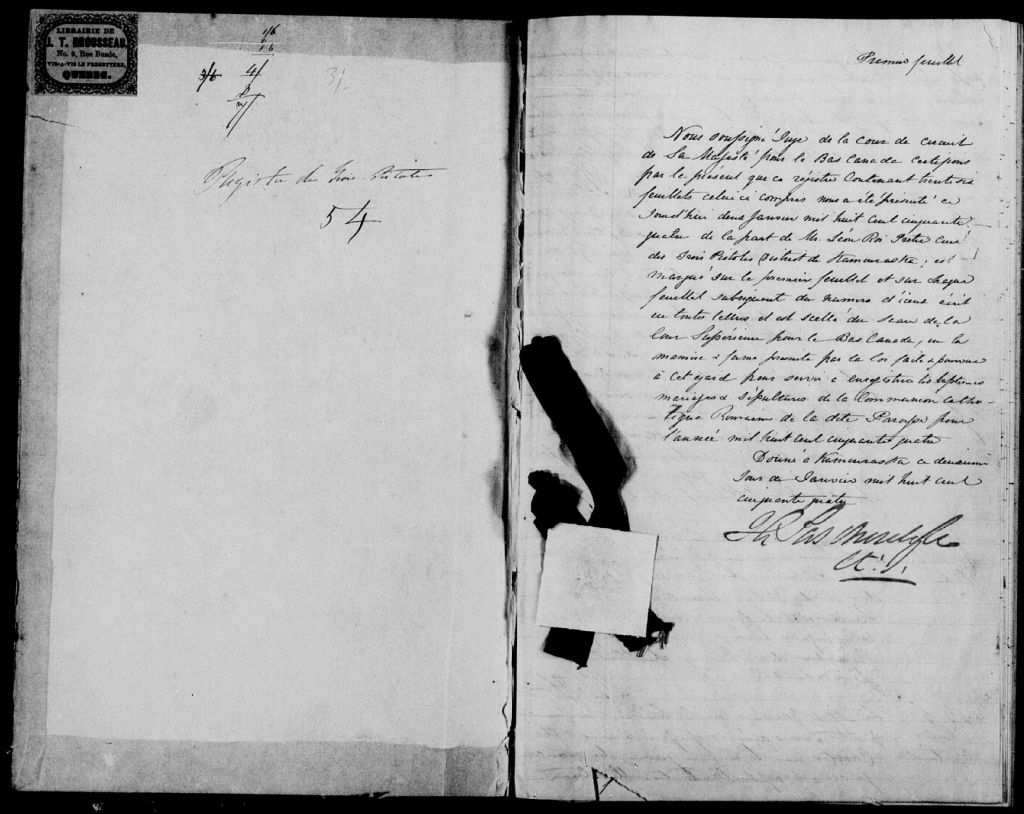 LIBRAIRIE DE
J. T. BROUSSEAU,
No. 9, Rue Buade,
VIS-A-VIS LE PRESBYTERE,
QUEBEC.
3/6
4/
3/
Registre de Trois-Pistoles
54
Premier feuillet
Nous soussigné Juge de la cour de circuit
de Sa Majesté pour le Bas Canada certifions
par le présent que ce régistre contenant trente six
feuillets celui ci compris nous a été présenté ce
Jourd'hui deux Janvier mil huit cent cinquante
quatre de la part de Mr. Léon Roi Prêtre curé
des Trois Pistoles District de Kamouraska; est
marqué sur le premier feuillet et sur chaque
feuillet subséquent du numero d'iceux écrit
en toutes lettres et est scellé du Sceau de la
Cour Supérieure pour le Bas Canada, en la
maniere & forme presente par la loi faite & pourvue
à cet égard pour servir à enregistrer les baptêmes
mariages & Sépultures de la Communion Catho-
lique Romaine de la dite Paroisse pour
l'année mil huit cent cinquante quatre
Donné à Kamouraska ce deuxieme
Jour de Janvier mil huit cent
cinquante quatre